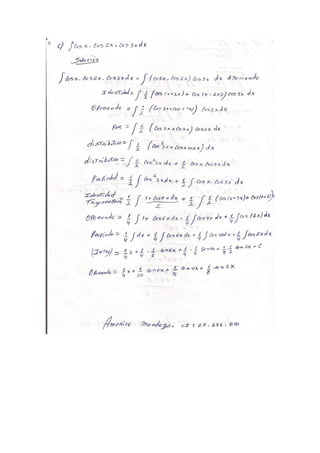 c) ∫ cos x. cos 2x. cos 3x dx
Solución
∫ cos x. cos 2x. cos 3x dx = ∫ (cos x. cos 2x) cos 3x dx Asociando
Identidad = ∫ 1/2 (cos (x+2x) + cos (x-2x)) cos 3x dx
Operando = ∫ 1/2 (cos 3x + cos (-x)) cos 3x dx
Par = ∫ 1/2 (cos 3x + cos x) cos 3x dx
distributiva = ∫ 1/2 (cos² 3x + cos x cos 3x) dx
distributiva = ∫ 1/2 cos² 3x dx + 1/2 cos x cos 3x dx
Propiedad = 1/2 ∫ cos² 3x dx + 1/2 ∫ cos x. cos 3x dx
Identidad Trigonometrica = 1/2 ∫ 1 + cos 6x dx / 2 + 1/2 ∫ 1/2 (cos (x+3x) + cos (x-3x))
Operando = 1/4 ∫ 1 + cos 6x dx + 1/4 ∫ cos 4x dx + 1/4 ∫ cos (2x) dx
Propied = 1/4 ∫ dx + 1/4 ∫ cos 6x dx + 1/4 ∫ cos 4x dx + 1/4 ∫ cos 2x dx
= 1/4 x + 1/4 . 1/6 sen 6x + 1/4 . 1/4 sen 4x + 1/4 . 1/2 sen 2x + C
Operando = 1/4 x + 1/24 sen 6x + 1/16 sen 4x + 1/8 sen 2x
Mendoza. CI: